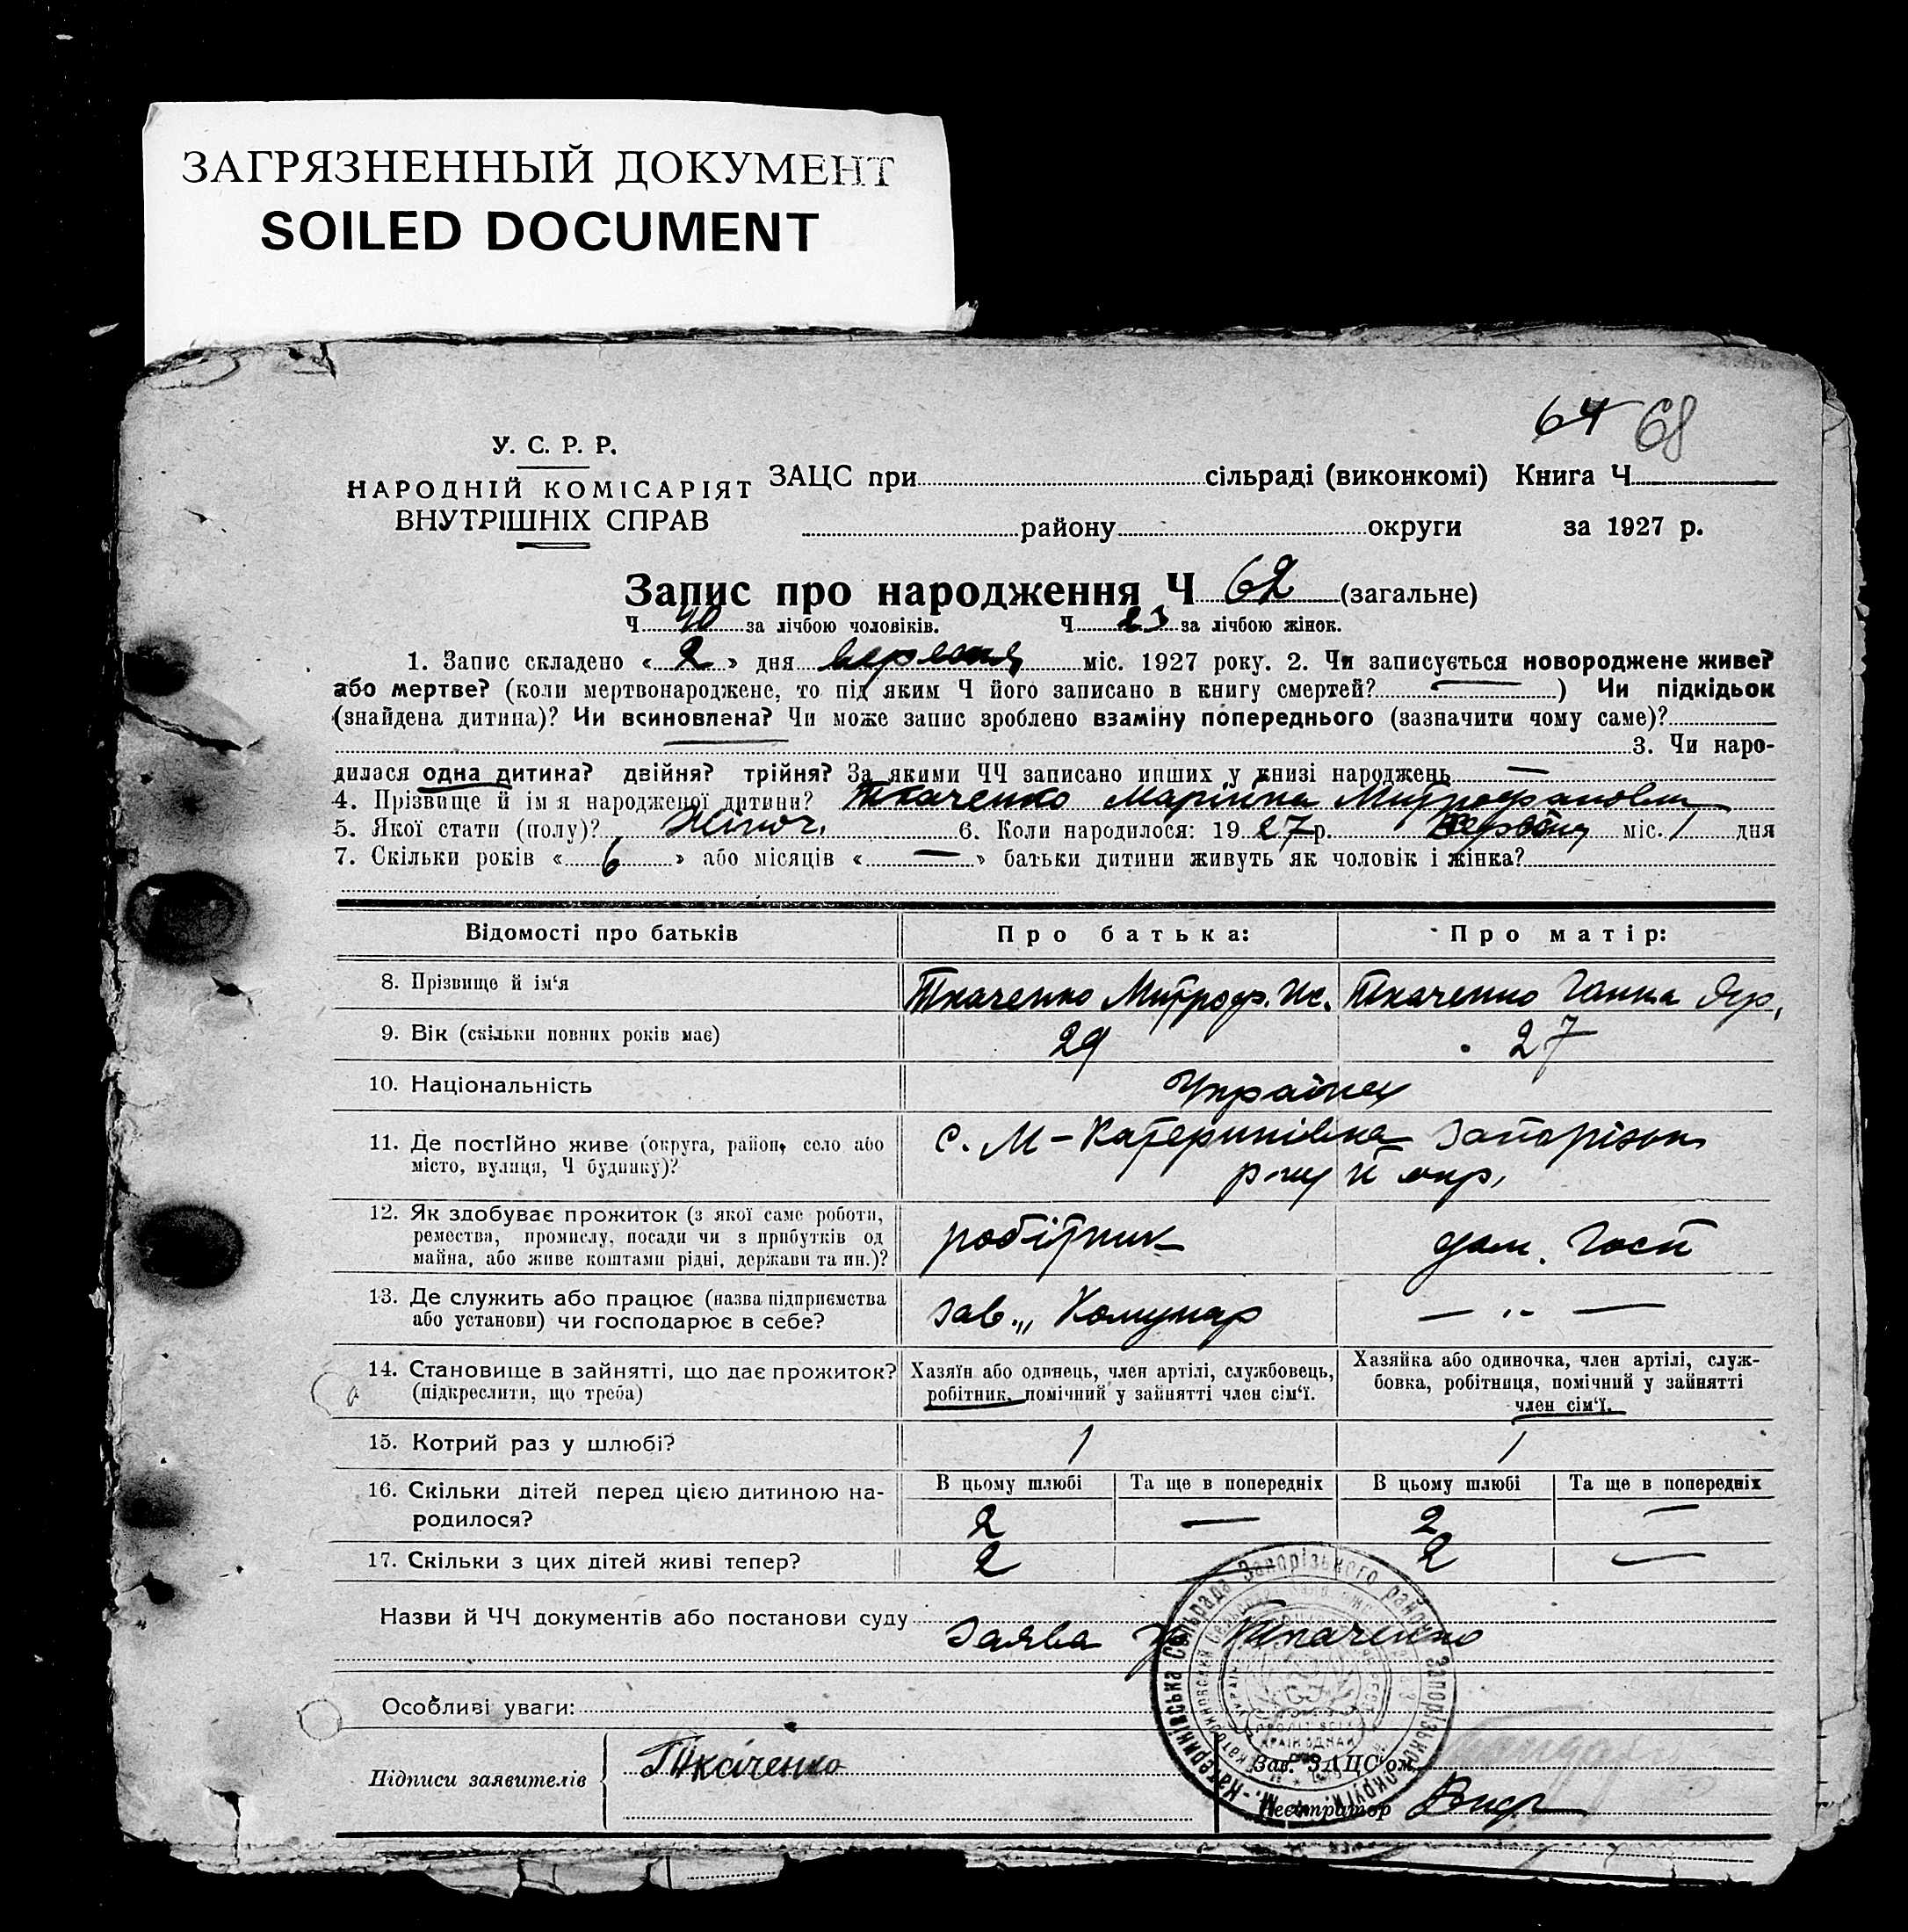 ЗАГРЯЗНЕННЫЙ ДОКУМЕНТ
SOILED DOCUMENT
64 68
У. С. Р. Р.
НАРОДНІЙ КОМІСАРІЯТ
ВНУТРІШНІХ СПРАВ
ЗАЦС при сільраді (виконкомі) Книга Ч
району округи за 1927 р.
Запис про народження Ч 62 (загальне)
Ч 40 за лічбою чоловіків. Ч 23 за лічбою жінок.
1. Запис складено « 2 » дня вересня міс. 1927 року. 2. Чи записується новороджене живе?
або мертве? (коли мертвонароджене, то під яким Ч його записано в книгу смертей? — ) Чи підкідьок
(знайдена дитина)? Чи всиновлена? Чи може запис зроблено взаміну попереднього (зазначити чому саме)?
3. Чи наро-
дилася одна дитина? двійня? трійня? За якими ЧЧ записано инших у книзі народжень —
4. Прізвище й ім'я народженої дитини? Ткаченко Марїйна Митрофановна
5. Якої стати (полу)? Жіноч. 6. Коли народилося: 19 27 р. міс. 1 дня
7. Скільки років « 6 » або місяців « — » батьки дитини живуть як чоловік і жінка?
Відомості про батьків Про батька: Про матір:
8. Прізвище й ім'я Ткаченко Митроф. Ис. Ткаченко Ганна
9. Вік (скільки повних років має) 29 27
10. Національність Українці
11. Де постійно живе (округа, район, село або
місто, вулиця, Ч будинку)?
с. М-Катеринівка Запорізьк
р-ну й окр.
12. Як здобуває прожиток (з якої саме роботи,
ремества, промислу, посади чи з прибутків од
майна, або живе коштами рідні, держави та ин.)?
робітник дом. госп
13. Де служить або працює (назва підприємства
або установи) чи господарює в себе?
зав. „ Комунар — „ —
14. Становище в зайнятті, що дає прожиток?
(підкреслити, що треба)
Хазяїн або одинець, член артілі, службовець,
робітник, помічний у зайнятті член сім'ї.
Хазяйка або одиночка, член артілі, служ-
бовка, робітниця, помічний у зайнятті
член сім'ї.
15. Котрий раз у шлюбі? 1 1
16. Скільки дітей перед цією дитиною на-
родилося?
В цьому шлюбі Та ще в попередніх В цьому шлюбі Та ще в попередніх
2 — 2 —
17. Скільки з цих дітей живі тепер? 2 2 —
Назви й ЧЧ документів або постанови суду
Заява гр Ткаченко
М.-Катеринівська Сільрада Запорізького району Запорізької округи
Особливі уваги:
Підписи заявителів Ткаченко
Зав. ЗАЦС'ом
Реєстратор